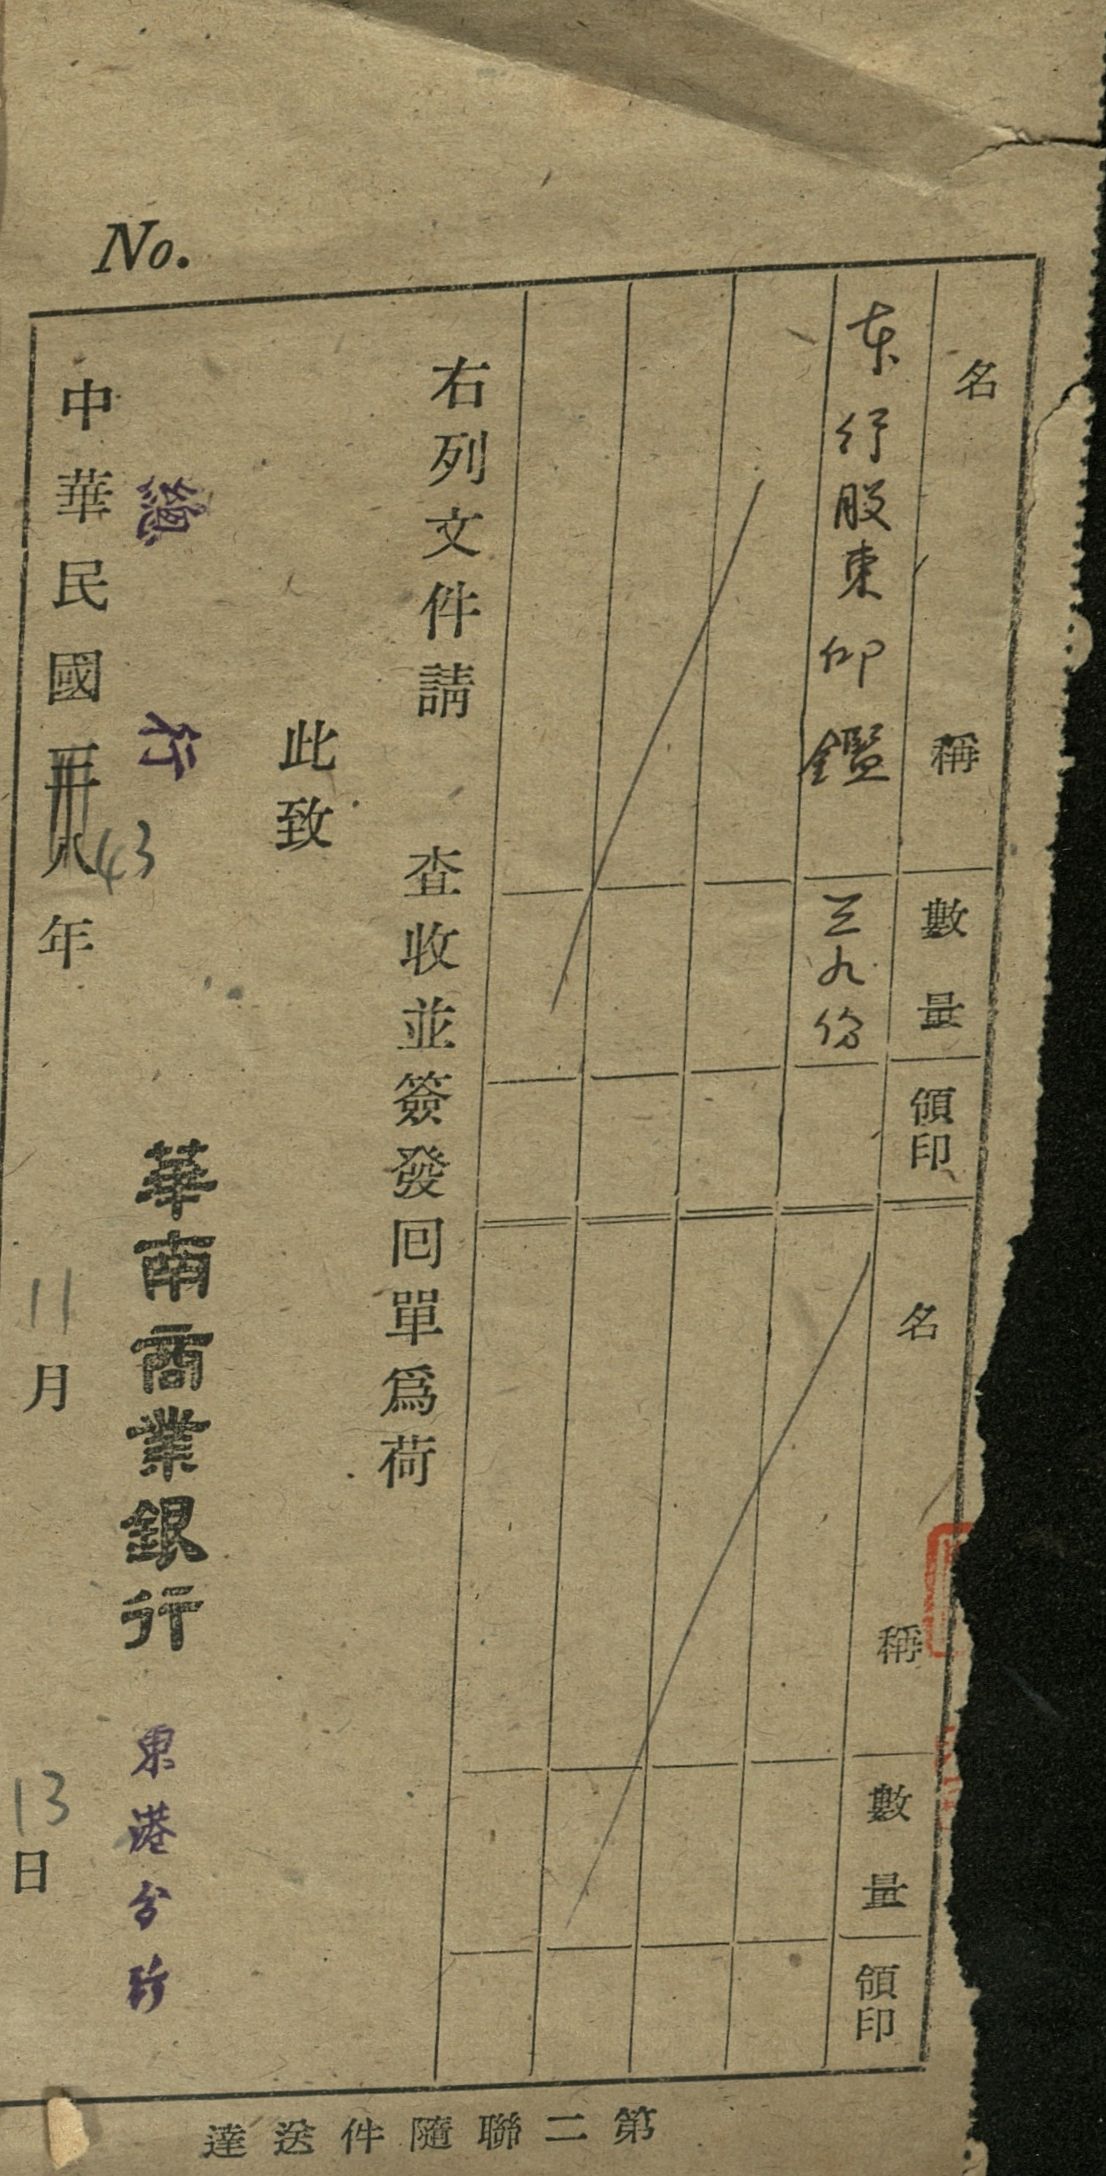 No.
名稱 數量 領印 名稱 數量 領印
本行股東印鑑 三九份
右列文件請 查收並簽發回單爲荷
此致
總行
華南商業銀行 東港分行
中華民國卅八43年11月13日
第二聯隨件送達